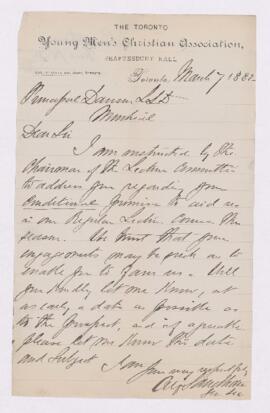 THE TORONTO
Young Men's Christian Association,
SHAFTESBURY HALL
Toronto, March 7 1882
Principal Dawson LLD
Montreal
Dear Sir
I am instructed by the
Chairman of the Lecture Committee
to address you regarding your
conditional promise to aid us
in our Regular Lecture Course this
season. We trust that your
engagements may be such as to
enable you to favor us. Will
you kindly let me know, at
as early a date as possible as
to the prospect, and if agreeable
please let me know the date
and subject
I am
Yours very respectfully